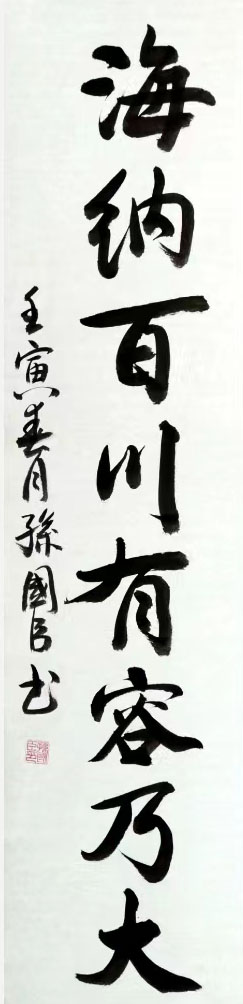 海纳百川有容乃大
壬寅春月孫國良书